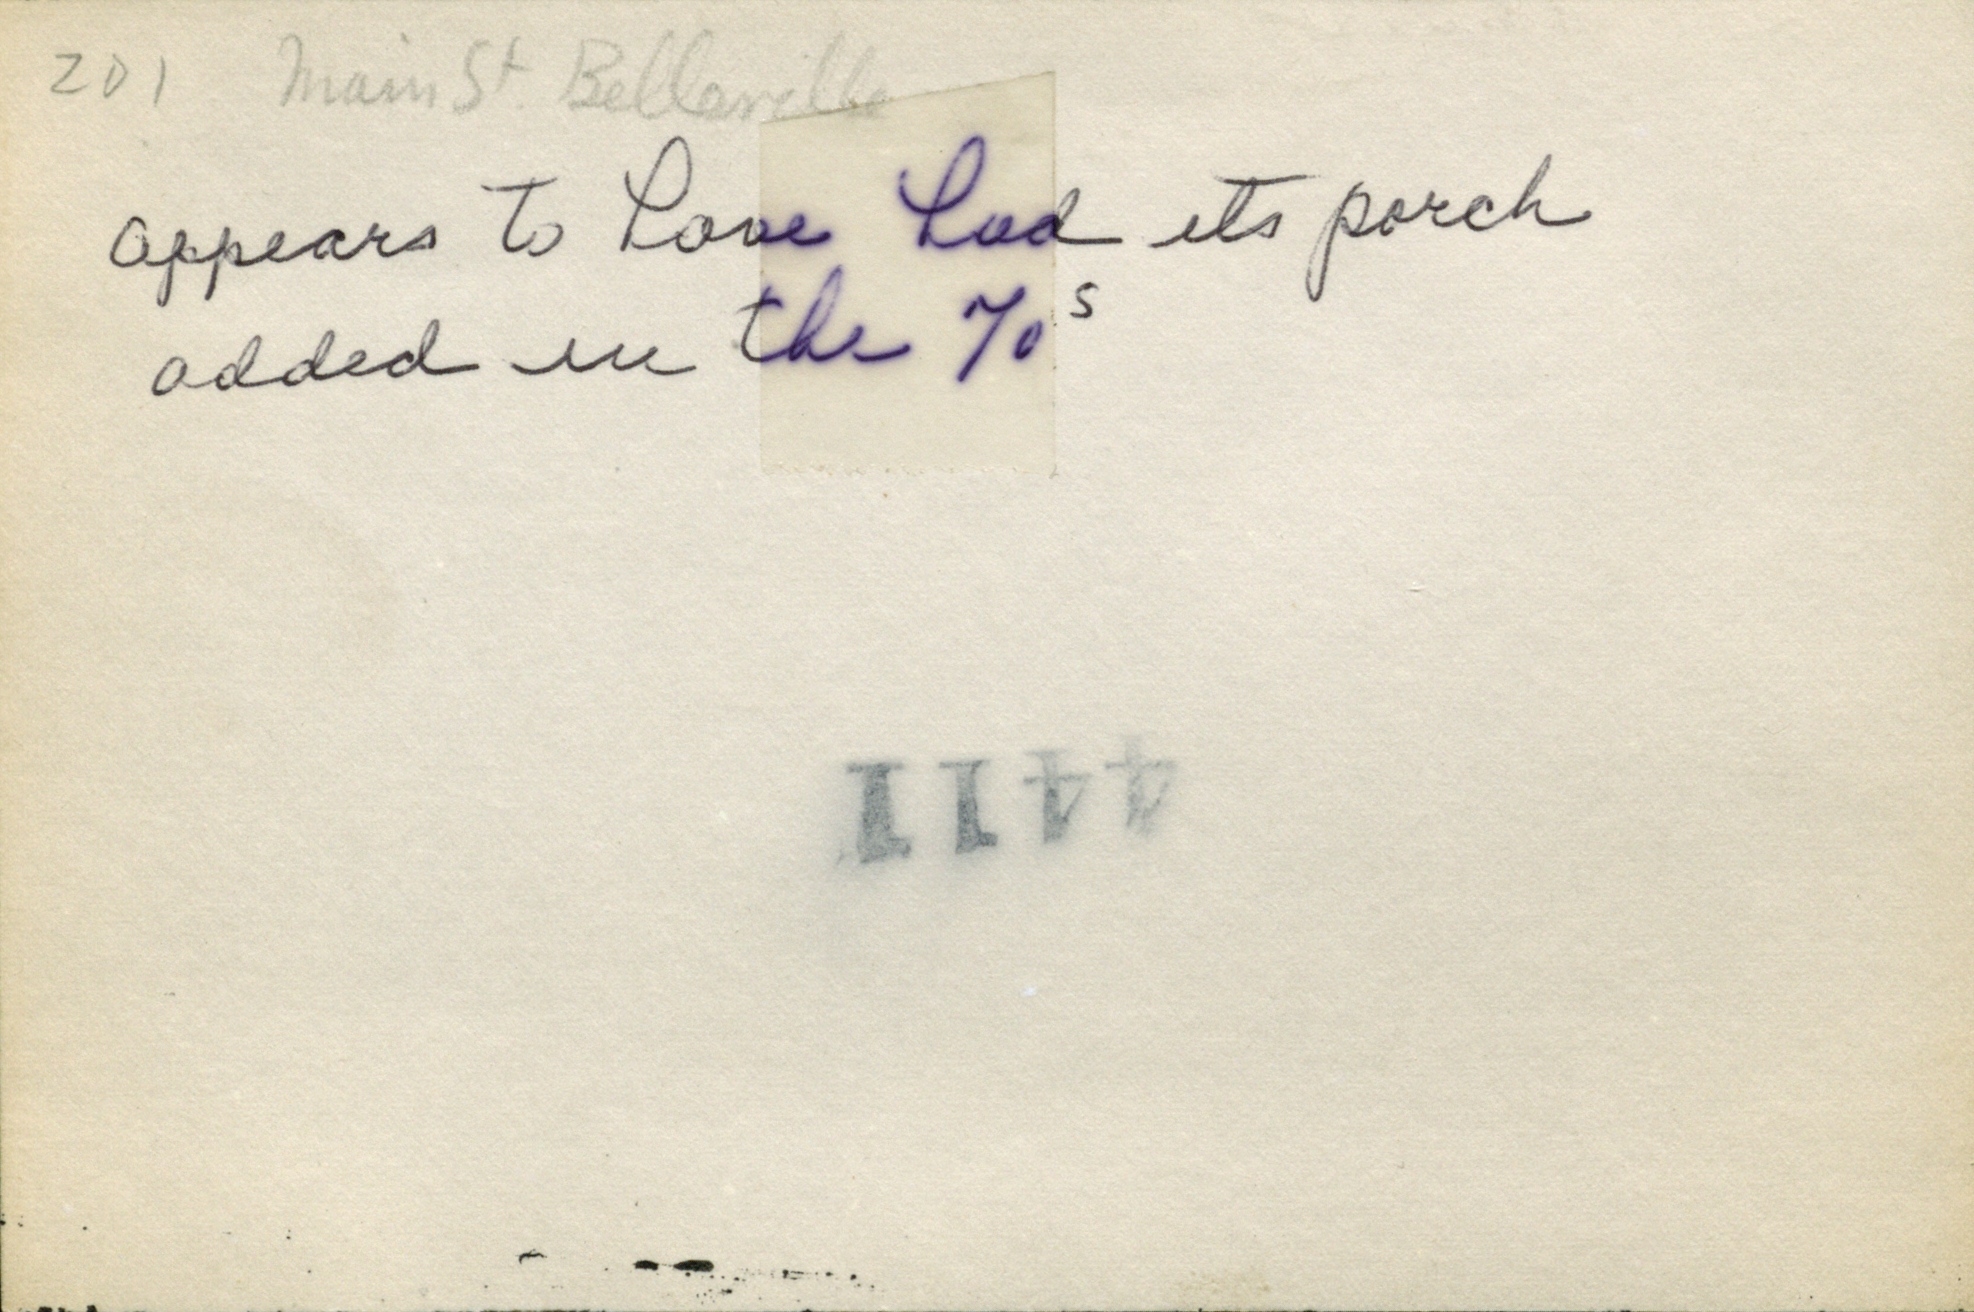 201 Main St. Bellaville
appears to have had its porch
added in the 70s
4411